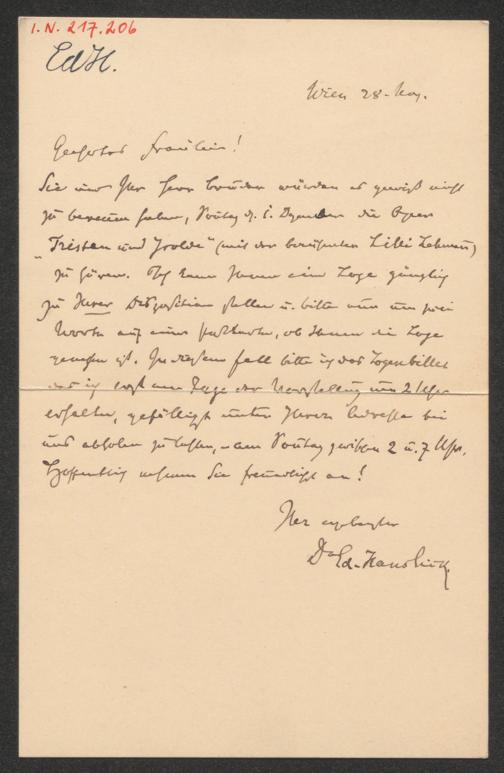 I. N. 217.206
EdH.
Wien 28. Nov.
Geehrtes Fräulein!
Sie und Ihr Herr Bruder würden es gewiß nicht
zu bereuen haben, Sontag d. Dezember die Oper
"Tristan und Isolde" (mit der berühmten Lilli Lehmann)
zu hören. Ich kann Ihnen eine Loge gänzlich
zu Ihrer Disposition stellen u. bitte nur um zwei
Worte auf einer Postkarte, ob Ihnen die Loge
genehm ist. In diesem Fall bitte ich das Logenbillet
das ich erst am Tage der Vorstellung um 2 Uhr
erhalte, gefälligst unter Ihrer Adresse bei
uns abholen zu lassen, – am Sontag zwischen 2 u. 7 Uhr.
Hoffentlich nehmen Sie freundlichst an!
Ihr ergebenster
Dr Ed. Hanslick